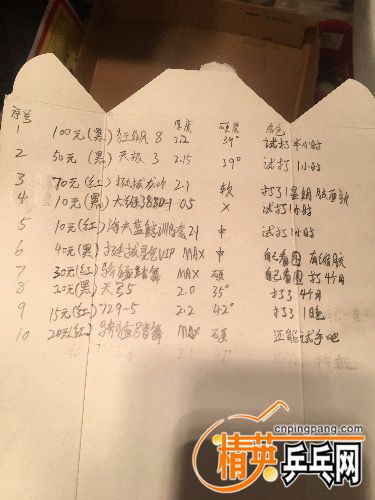 序号 厚度 硬度 成色
1 100元(黑) 狂飚 8 2.2 39° 试打半小时
2 50元 (黑) 天极 3 2.15 39° 试打1小时
3 70元(红) 2.1 软 打了1星期
4 10元(黑) 大维388D-1 0.5 X 试打1小时
5 10元(红) 海夫蓝鲸 2.1 中 试打1小时
6 40元(黑) VIP MAX 中 自己看图
7 30元(红) MAX 硬 自己看图 打4个月
8 20元(黑) 天弓5 2.0 35° 打了4个月
9 15元(红) 729-5 2.2 42° 打了1晚
10 20元(红) MAX 硬 还能试手吧
cnpingpang.com
精英乒乓网